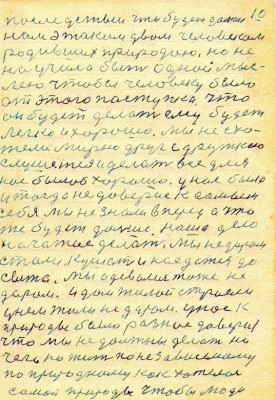 10
последствии что будет далше
нам этаким двом человекам
родивших природою, но не
научила быть одной мыс-
лею чтобы человеку было
от этого поступка, что
он будет делать ему будет
легко и хорошо. Мы не схо-
тели мирно друг с дружкою
делать все для
нас было хорошо. у нас было
и тогда недоверие к самим
себя мы не знали вперед а что
же будет далше, наше дело
начатое делать. Мы недаром
стали, кушать наедятся до
сыта. Мы одевалися тоже не
даром. и дом жилой строели
у нем жили не даром. у нас к
природы было разное доверия
что мы не должны делать ни
чего
по природному как хотелося
самой природы чтобы люди